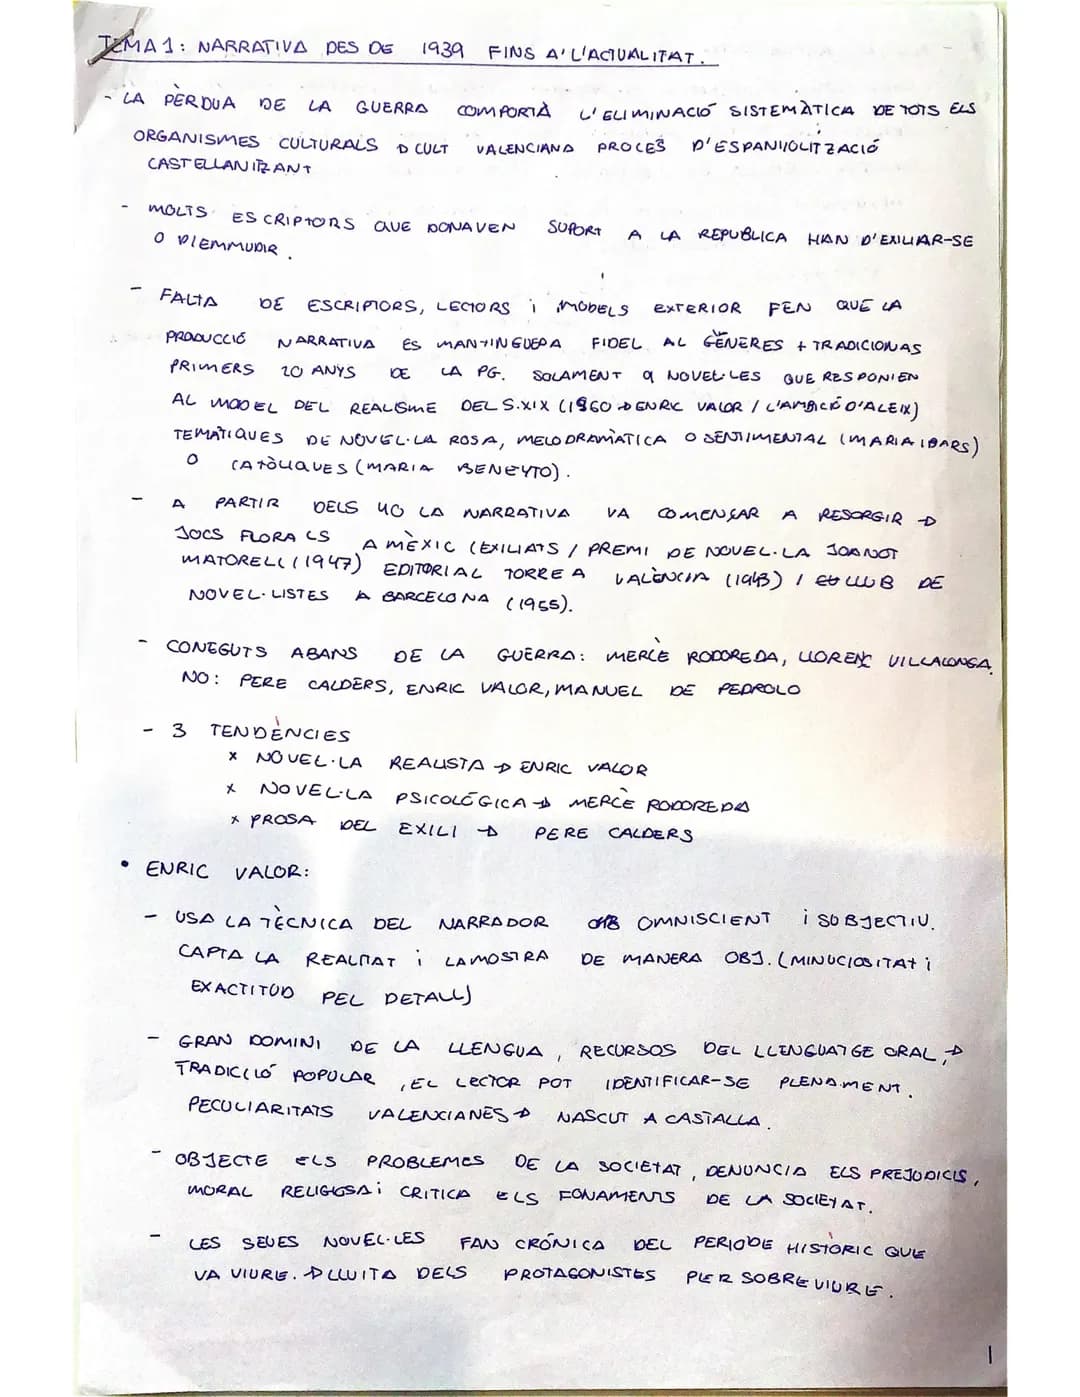 TEMA 1: NARRATIVA DES DE 1939 FINS A L'ACTUALITAT.
- LA PÈRDUA DE LA GUERRA COMPORTÀ L'ELIMINACIÓ SISTEMÀTICA DE TOTS ELS
ORGANISMES CULTURALS D CULT VALENCIANA PROCES D'ESPANYOLITZACIÓ
CASTELLANITZANT
- MOLTS ESCRIPTORS QUE DONAVEN SUPORT A LA REPUBLICA HAN D'EXILIAR-SE
O D'EMMUDIR.
- FALTA DE ESCRIPTORS, LECTORS i MODELS EXTERIOR FEN QUE LA
PRODUCCIÓ NARRATIVA ES MANTINGUERA FIDEL AL GÈNERES + TRADICIONAS
PRIMERS 20 ANYS DE LA PG. SOLAMENT 9 NOVEL·LES QUE RESPONIEN
AL MODEL DEL REALISME DEL S.XIX (1960 → ENRIC VALOR / L'AMBICIÓ D'ALEIX)
TEMATIQUES DE NOVEL·LA ROSA, MELODRAMÀTICA O SENTIMENTAL (MARIA IBARS)
O CATÒLIQUES (MARIA BENEYTO).
- A PARTIR DELS 40 LA NARRATIVA VA COMENÇAR A RESORGIR →
JOCS FLORALS A MÈXIC (EXILIATS / PREMI DE NOVEL·LA JOANOT
MATORELL (1947) EDITORIAL TORRE A VALÈNCIA (1943) / CLUB DE
NOVEL·LISTES A BARCELONA (1955).
- CONEGUTS ABANS DE LA GUERRA: MERCÈ RODOREDA, LLORENÇ VILLALONGA
NO: PERE CALDERS, ENRIC VALOR, MANUEL DE PEDROLO
- 3 TENDÈNCIES
x NOVEL·LA REALISTA → ENRIC VALOR
x NOVEL·LA PSICOLÓGICA → MERCÈ RODOREDA
x PROSA DEL EXILI → PERE CALDERS
• ENRIC VALOR:
- USA LA TÈCNICA DEL NARRADOR OMNISCIENT i SOBJECTIU.
CAPTA LA REALITAT i LA MOSTRA DE MANERA OBJ. (MINUCIOSITAT i
EXACTITUD PEL DETALL)
- GRAN DOMINI DE LA LLENGUA, RECURSOS DEL LLENGUATGE ORAL, →
TRADICCIÓ POPULAR, EL LECTOR POT IDENTIFICAR-SE PLENAMENT.
PECULIARITATS VALENCIANES → NASCUT A CASTALLA.
- OBJECTE ELS PROBLEMES DE LA SOCIETAT, DENUNCIA ELS PREJUDICIS,
MORAL RELIGIOSA i CRITICA ELS FONAMENTS DE LA SOCIETAT.
- LES SEUES NOVEL·LES FAN CRÓNICA DEL PERIODE HISTÒRIC QUE
VA VIURE. → LLUITA DELS PROTAGONISTES PER SOBREVIURE.
1